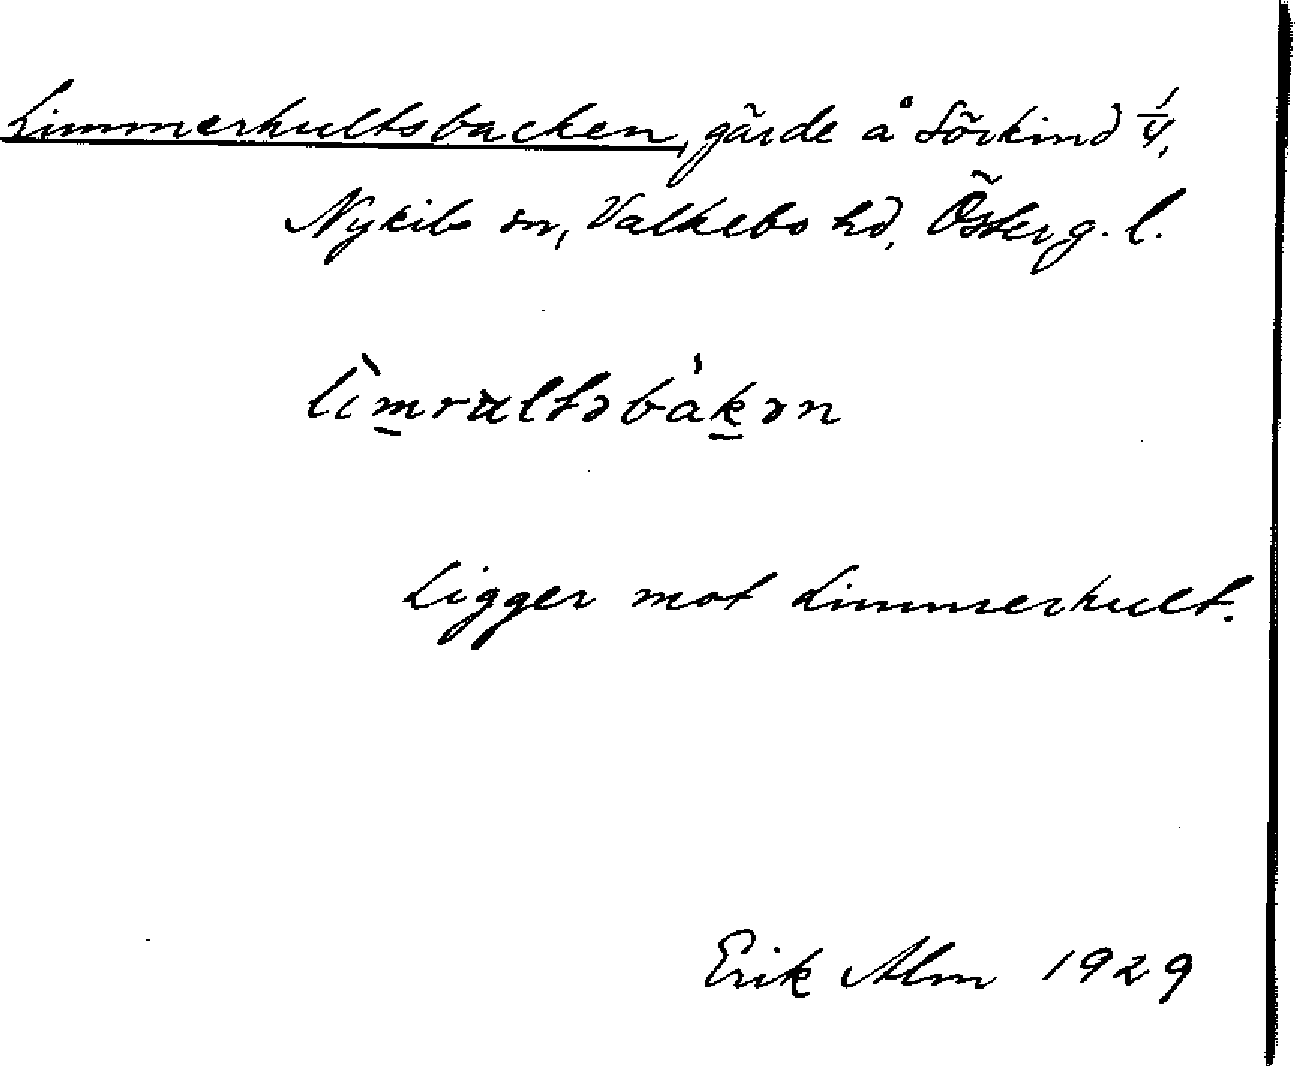 Limmerhultsbacken, gärde å Sörkind 1/4,
Nykils sn, Valkebo hd, Österg. l.
lìmrultsbákən
Ligger mot Limmerhult.
Erik Alm 1929